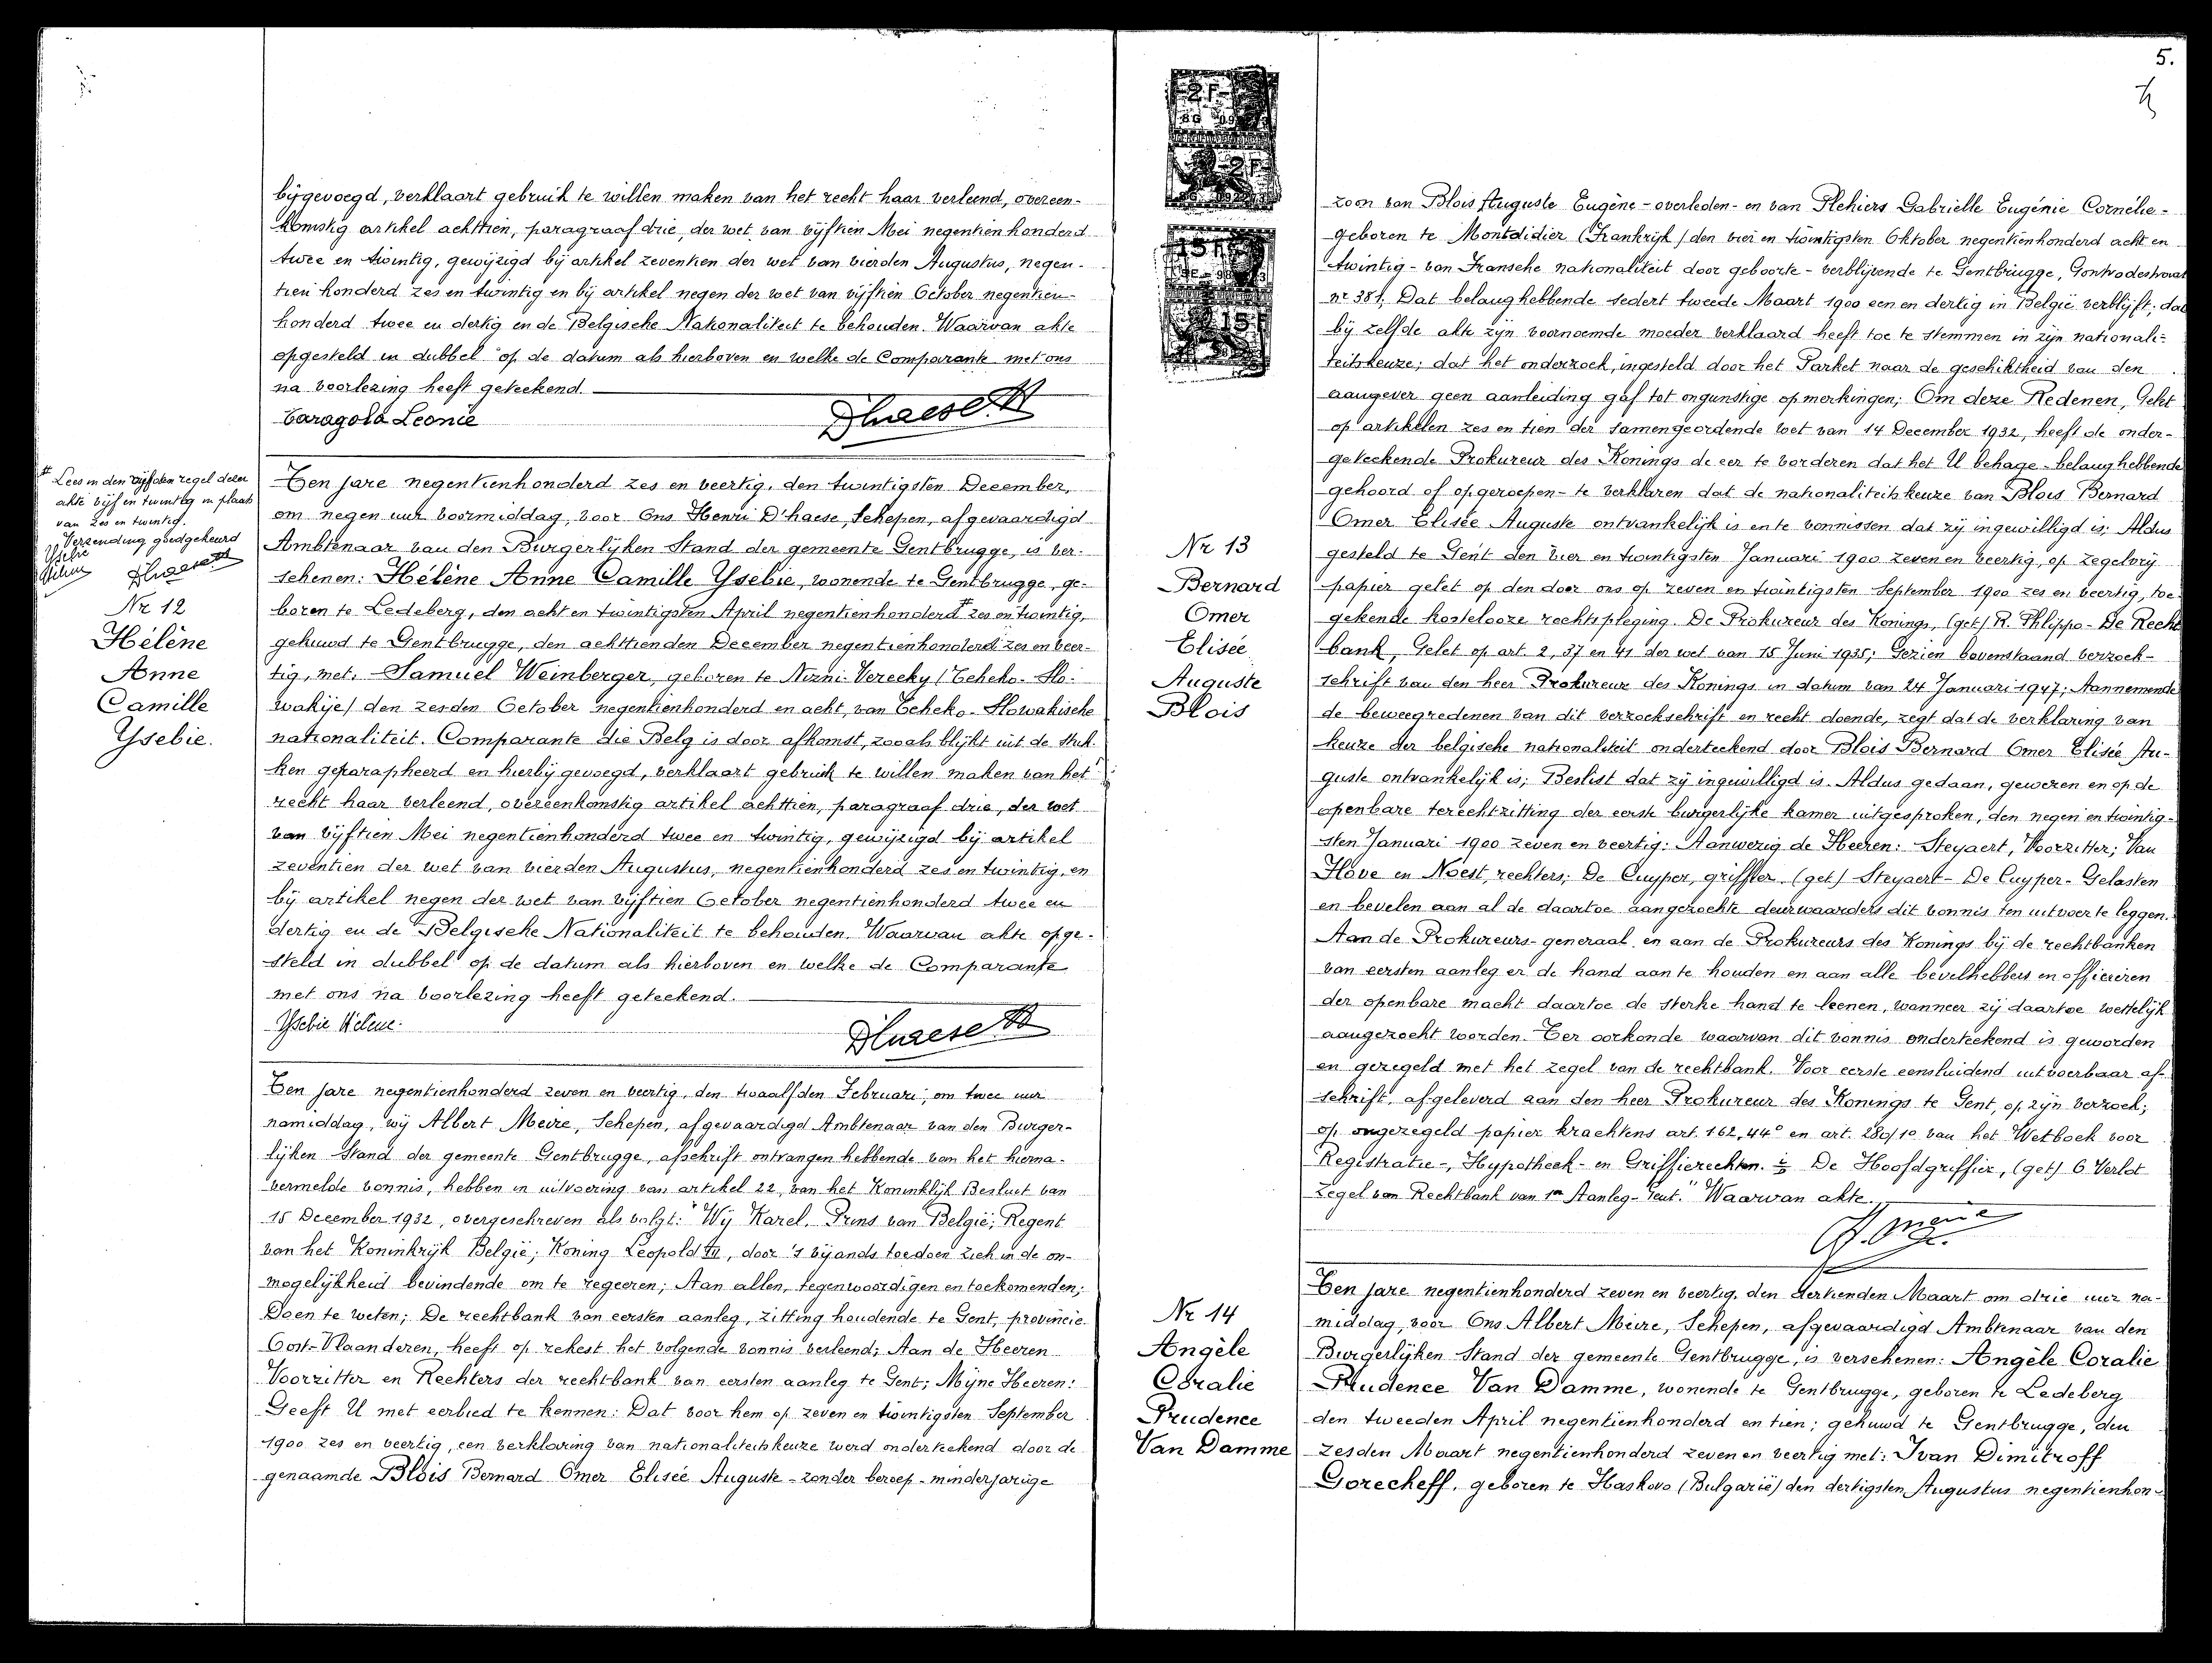 bijgevoegd, verklaart gebruik te willen maken van het recht haar verleend, overeen-
komstig artikel achttien, paragraaf drie, der wet van vijftien Mei negentienhonderd
twee en twintig, gewijzigd bij artikel zeventien der wet van vierden Augustus, negen-
tien honderd zes en twintig en bij artikel negen der wet van vijftien October negentien-
honderd twee en dertig en de Belgische Nationaliteit te behouden. Waarvan akte
opgesteld in dubbel op de datum als hierboven en welke de Comparante met ons
na voorlezing heeft geteekend.
Caragola Leonie
Dhaese H
# Lees in den vijfden regel dezer
akte vijf en twintig in plaats
van zes en twintig.
Verzending goedgekeurd
Ysebie
Hélène
Dhaese H
Nr 12
Hélène
Anne
Camille
Ysebie.
Ten jare negentienhonderd zes en veertig, den twintigsten December,
om negen uur voormiddag, voor Ons Henri D'haese, Schepen, afgevaardigd
Ambtenaar van den Burgerlijken Stand der gemeente Gentbrugge, is ver-
schenen: Hélène Anne Camille Ysebie, wonende te Gentbrugge, ge-
boren te Ledeberg, den acht en twintigsten April negentienhonderd # zes en twintig,
gehuwd te Gentbrugge, den achttienden December negentienhonderd zes en veer-
tig, met: Samuel Weinberger, geboren te Nizni-Verecky (Tcheko-Slo-
wakije) den zesden October negentienhonderd en acht, van Tcheko-Slowakische
nationaliteit. Comparante die Belg is door afkomst, zooals blijkt uit de stuk-
ken geparapheerd en hierbij gevoegd, verklaart gebruik te willen maken van het
recht haar verleend, overeenkomstig artikel achttien, paragraaf drie, der wet
van vijftien Mei negentienhonderd twee en twintig, gewijzigd bij artikel
zeventien der wet van vierden Augustus, negentienhonderd zes en twintig, en
bij artikel negen der wet van vijftien October negentienhonderd twee en
dertig en de Belgische Nationaliteit te behouden. Waarvan akte opge-
steld in dubbel op de datum als hierboven en welke de Comparante
met ons na voorlezing heeft geteekend.
Ysebie Hélène.
Dhaese H
Ten jare negentienhonderd zeven en veertig, den twaalfden Februari, om twee uur
namiddag, wij Albert Meire, Schepen, afgevaardigd Ambtenaar van den Burger-
lijken Stand der gemeente Gentbrugge, afschrift ontvangen hebbende van het hierna-
vermelde vonnis, hebben in uitvoering van artikel 22, van het Koninklijk Besluit van
15 December 1932, overgeschreven als volgt: "Wij Karel, Prins van België; Regent
van het Koninkrijk België; Koning Leopold III, door 's vijands toedoen zich in de on-
mogelijkheid bevindende om te regeeren; Aan allen, tegenwoordigen en toekomenden;
Doen te weten; De rechtbank van eersten aanleg, zitting houdende te Gent, provincie
Oost-Vlaanderen, heeft op rekest het volgende vonnis verleend; Aan de Heeren
Voorzitter en Rechters der rechtbank van eersten aanleg te Gent; Mijne Heeren:
Geeft U met eerbied te kennen: Dat voor hem op zeven en twintigsten September
1900 zes en veertig, een verklaring van nationaliteitskeuze werd onderteekend door de
genaamde Blois Bernard Omer Elisée Auguste - zonder beroep - minderjarige
5.
2 F
2 F
15 F
15 F
zoon van Blois Auguste Eugène - overleden - en van Plehiers Gabrielle Eugénie Cornélie -
geboren te Montdidier (Frankrijk) den vier en twintigsten Oktober negentienhonderd acht en
twintig - van Fransche nationaliteit door geboorte - verblijvende te Gentbrugge, Gontrodestraat
nr 381, Dat belanghebbende sedert tweede Maart 1900 een en dertig in België verblijft; dat
bij zelfde akte zijn voornoemde moeder verklaard heeft toe te stemmen in zijn nationali-
teitskeuze; dat het onderzoek, ingesteld door het Parket naar de geschiktheid van den
aangever geen aanleiding gaf tot ongunstige opmerkingen; Om deze Redenen, Gelet
op artikelen zes en tien der samengeordende wet van 14 December 1932, heeft de onder-
geteekende Prokureur des Konings de eer te vorderen dat het U behage - belanghebbende
gehoord of opgeroepen - te verklaren dat de nationaliteitskeuze van Blois Bernard
Omer Elisée Auguste ontvankelijk is en te vonnissen dat zij ingewilligd is; Aldus
gesteld te Gent den vier en twintigsten Januari 1900 zeven en veertig, op zegelvrij
papier gelet op den door ons op zeven en twintigsten September 1900 zes en veertig, toe-
gekende kostelooze rechtspleging. De Prokureur des Konings, (get) R. Phlippo - De Recht
bank, Gelet op art. 2, 37 en 41 der wet van 15 Juni 1935; Gezien bovenstaand verzoek-
schrift van den heer Prokureur des Konings in datum van 24 Januari 1947; Aannemende
de beweegredenen van dit verzoekschrift en recht doende, zegt dat de verklaring van
keuze der belgische nationaliteit onderteekend door Blois Bernard Omer Elisée Au-
guste ontvankelijk is; Beslist dat zij ingewilligd is. Aldus gedaan, gewezen en op de
openbare terechtzitting der eerste burgerlijke kamer uitgesproken, den negen en twintig-
sten Januari 1900 zeven en veertig: Aanwezig de Heeren: Steyaert, Voorzitter; Van
Hove en Noest, rechters; De Cuyper, griffier. (get) Steyaert - De Cuyper - Gelasten
en bevelen aan al de daartoe aangezochte deurwaarders dit vonnis ten uitvoer te leggen.
Aan de Prokureurs-generaal en aan de Prokureurs des Konings bij de rechtbanken
van eersten aanleg er de hand aan te houden en aan alle bevelhebbers en officieren
der openbare macht daartoe de sterke hand te leenen, wanneer zij daartoe wettelijk
aangezocht worden. Ter oorkonde waarvan dit vonnis onderteekend is geworden
en gezegeld met het zegel van de rechtbank. Voor eerste eensluidend uitvoerbaar af-
schrift, afgeleverd aan den heer Prokureur des Konings te Gent, op zijn verzoek;
op ongezegeld papier krachtens art. 162,44° en art. 280/1° van het Wetboek voor
Registratie-, Hypotheek- en Griffierechten. De Hoofdgriffier, (get) G. Verlot
Zegel van Rechtbank van 1n Aanleg - Gent." Waarvan akte.
A. Meire
Nr 13
Bernard
Omer
Elisée
Auguste
Blois
Nr 14
Angèle
Coralie
Prudence
Van Damme
Ten jare negentienhonderd zeven en veertig, den dertienden Maart om drie uur na-
middag, voor Ons Albert Meire, Schepen, afgevaardigd Ambtenaar van den
Burgerlijken Stand der gemeente Gentbrugge, is verschenen: Angèle Coralie
Prudence Van Damme, wonende te Gentbrugge, geboren te Ledeberg
den tweeden April negentienhonderd en tien; gehuwd te Gentbrugge, den
zesden Maart negentienhonderd zeven en veertig met: Ivan Dimitroff
Gorecheff, geboren te Haskovo (Bulgarië) den dertigsten Augustus negentienhon-